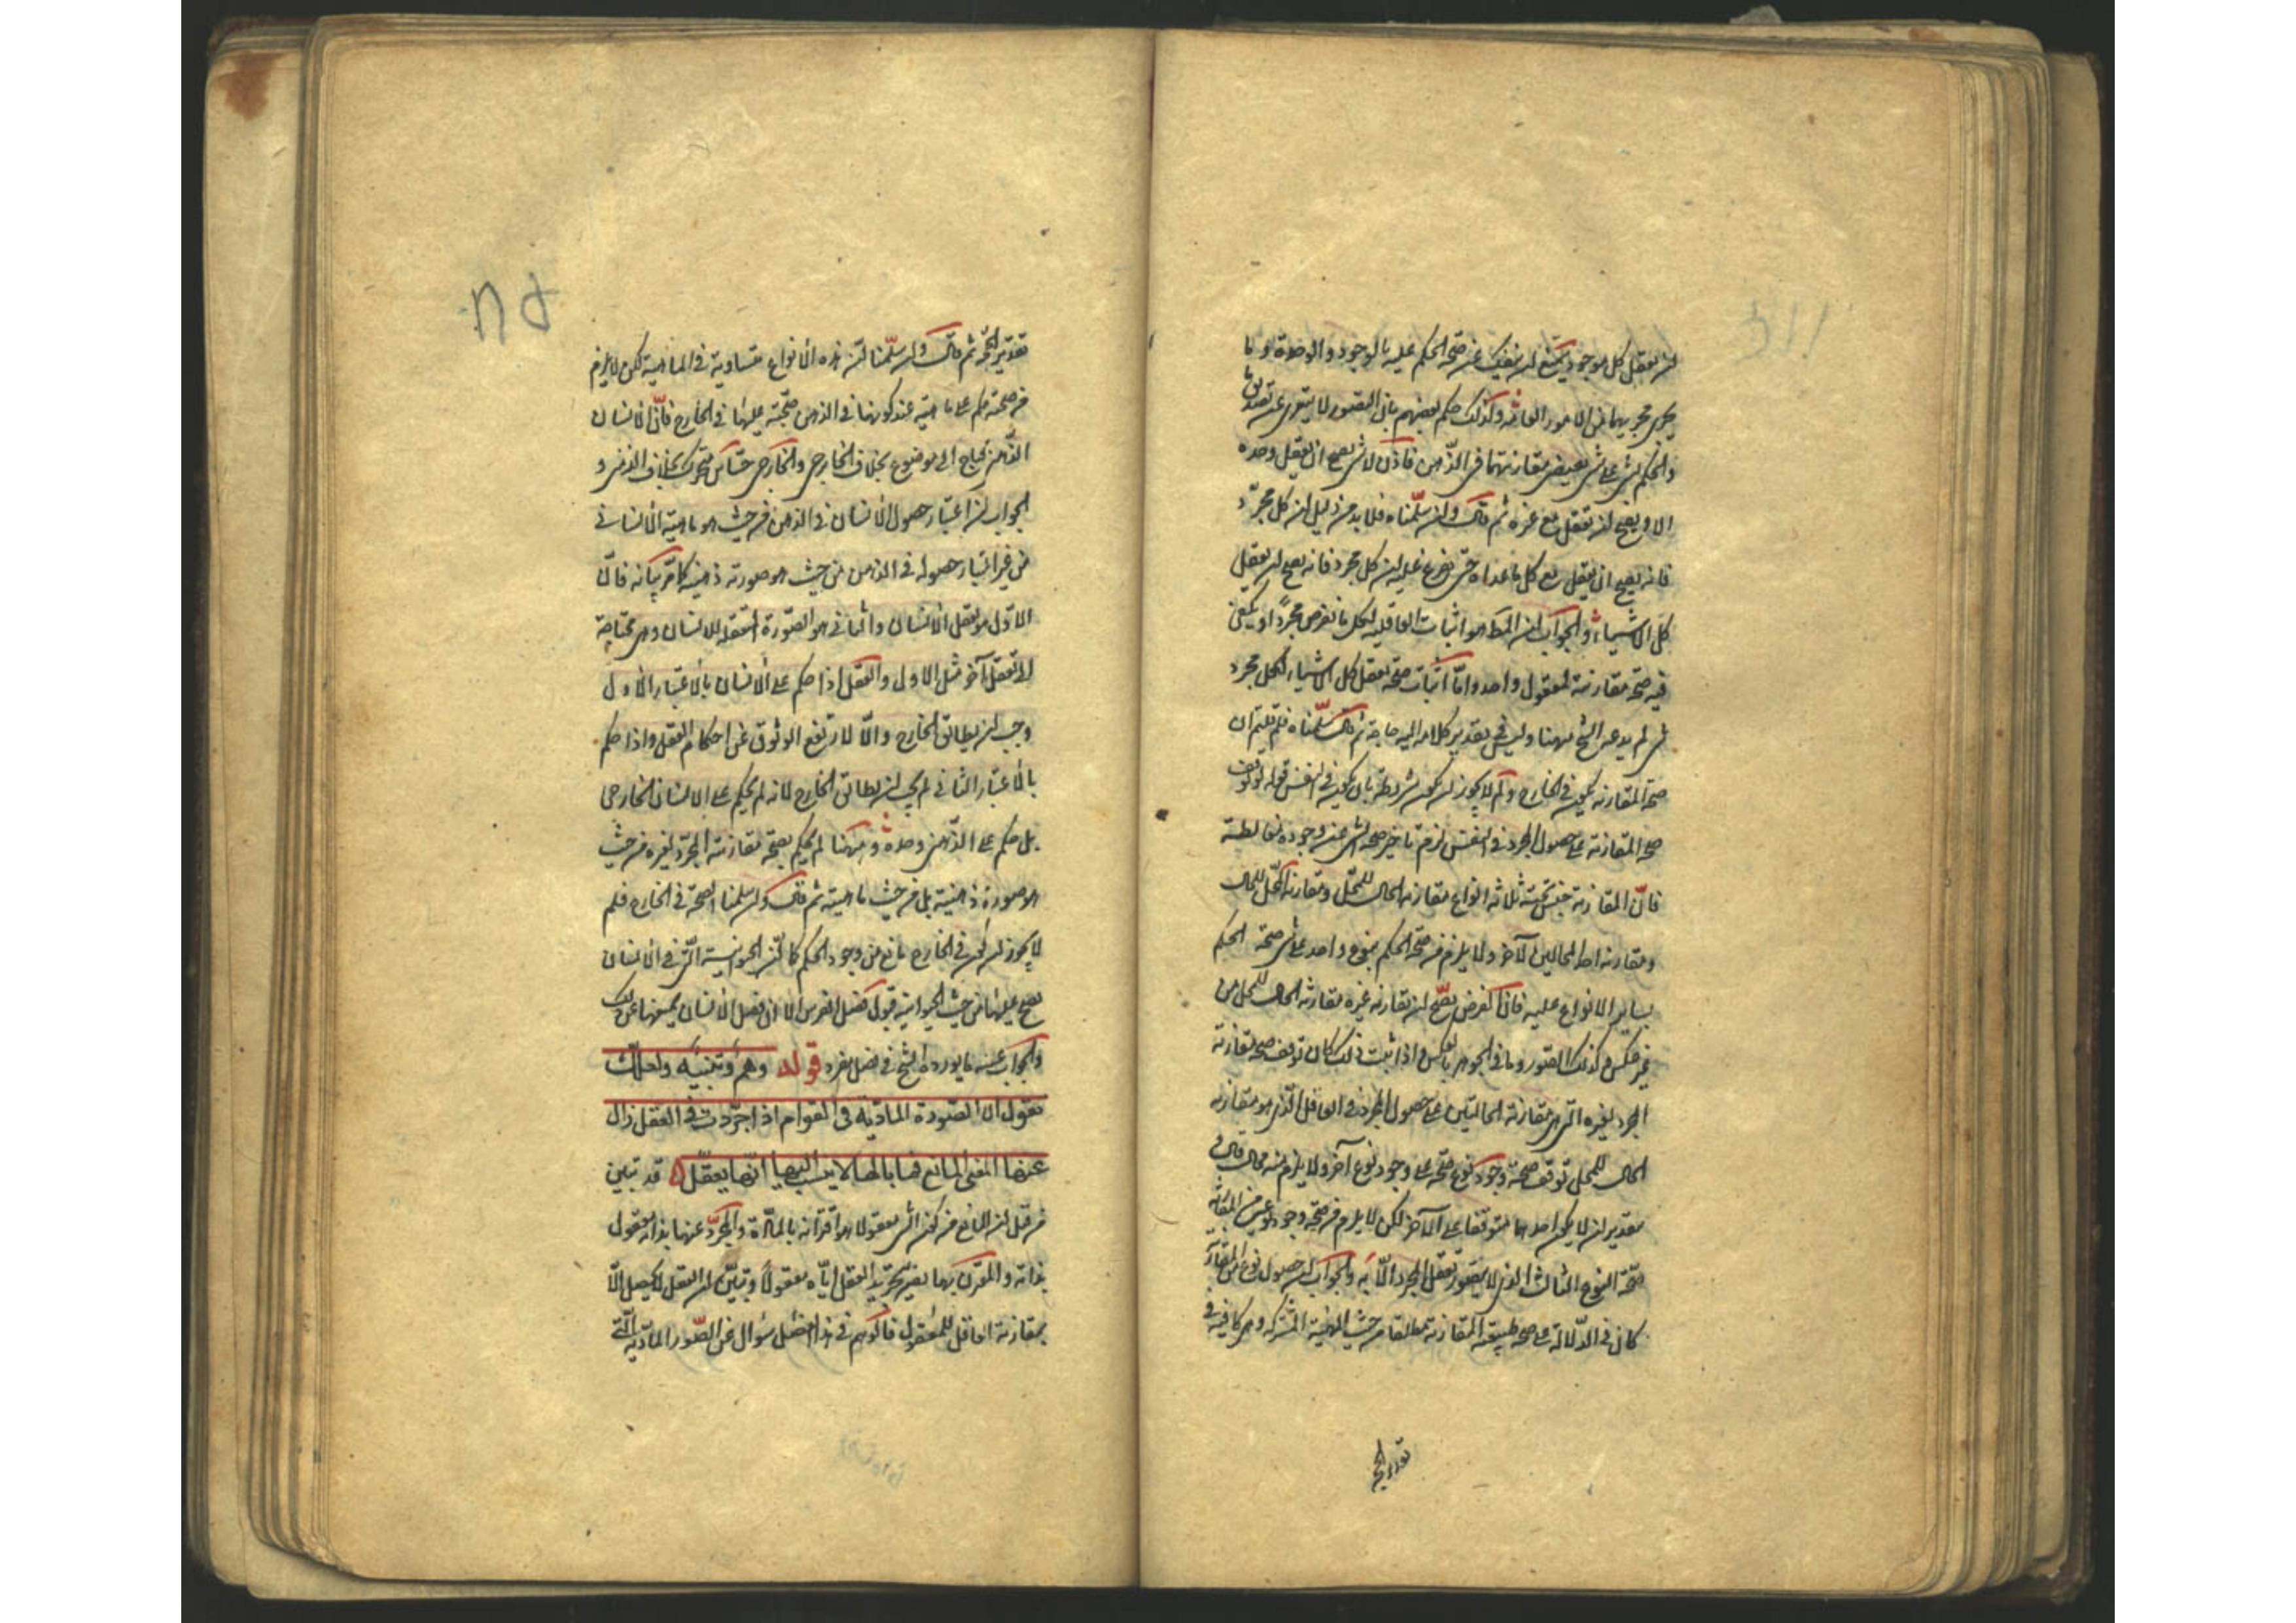 ان يعقل كل موجود يمتنع ان ينفك عن صحة الحكم عليه بالوجود والوحدة وما
يجرى مجريهما من الامور العامة وكذلك حكم بعضهم بان التصور لا يتعرى عن تصديق ما
والحكم بشى على شى يقتضى مقارنتهما فى الذهن فاذن لا شى يصح ان يعقل وحده
الا ويصح ان يعقل مع غيره ثم قال وان سلمناه فلا بد من دليل ان كل مجرد
فانه يصح ان يعقل مع كل ما عداه حتى يتفرع عليه ان كل مجرد فانه يصح ان يعقل
كل الاشياء والجواب ان المط هو اثبات العاقلية لكل ما نفرض مجردا ويكفى
فيه صحة مقارنته لمعقول واحد واما اثبات صحة تعقل كل الاشياء لكل مجرد
شى لم يدعه الشيخ ههنا وليس فى تقدير كلامه اليه حاجة ثم قال سلمناه فلم قلتم ان
صحة المقارنة يكون فى الخارج ولم لا يجوز ان يكون مشروطة بان يكون فى النفس قوله لو توقف
صحة المقارنة على حصول المجرد فى النفس لزم تاخير صحة الشى عن وجوده مغالطة
فان المقارنة جنس تحته ثلاثة انواع مقارنة الحال للمحل ومقارنة المحل للحال
ومقارنة احد الحالين للآخر ولا يلزم من صحة الحكم بنوع واحد على شى صحة الحكم
بساير الانواع عليه فان العرض يصح ان يقارنه غيره مقارنة الحال للمحل من
غير عكس وكذلك الصور وما فى الجوهر بالعكس واذا ثبت ذلك كان توقف صحة مقارنة
المجرد لغيره التى هى مقارنة الحالتين على حصول المجرد فى العاقل الذى هو مقارنة
الحال للمحل توقف صحة وجود نوع صحته على وجود نوع آخر ولا يلزم منه محال قال فى
تقدير ان لا يكون احدهما متوقفا على الآخر لكن لا يلزم من صحة وجود نوعين من المقارنة
صحة النوع الثالث الذى لا يتصور تعقل المجرد الا به والجواب ان حصول نوع من المقارنة
كان فى الدلالة على صحة طبيعة المقارنة مطلقا من حيث المهية المشتركة وهى كافية فى
تقدير الحجة
تقدير الحجة ثم قال ولئن سلمنا ان هذه الانواع متساوية فى الماهية لكن لا يلزم
من صحة حكم على ماهية عند كونها فى الذهن صحته عليها فى الخارج فان الانسان
الذهنى يحتاج الى موضوع بخلاف الخارجى والخارجى حساس متحرك بخلاف الذهنى و
الجواب ان اعتبار حصول الانسان فى الذهن من حيث هو ماهية الانسان
من غير اعتبار حصوله فى الذهن من حيث هو صورته ذهنية كما مر بيانه فان
الاول هو تعقل الانسان والثانى هو الصورة المتعقلة للانسان وهى محتاجة
الى تعقل آخر مثل الاول والعقل اذا حكم على الانسان بالاعتبار الاول
وجب ان يطابق الخارج والا لارتفع الوثوق عن احكام العقل واذا حكم
بالاعتبار الثانى لم يجب ان يطابق الخارج لانه لم يحكم على الانسان الخارجى
بل حكم على الذهنى وحده وههنا لم يحكم بصحة مقارنة المجرد لغيره من حيث
هو صورة ذهنية بل من حيث ماهيته ثم قال ولئن سلمنا الصحة فى الخارج فلم
لا يجوز ان يكون فى الخارج مانع من وجود الحكم كما ان الحيوانية التى فى الانسان
يصح عليها من حيث الحيوانية قبول فصل الفرس الا ان فصل الانسان يمنعها عن ذلك
والجواب عنه ما يورده الشيخ فى فصل مفرد قوله وهم وتنبيه ولعلك
تقول ان الصورة المادية فى القوام اذا جردت فى العقل زال
عنها المعنى المانع فما بالها لا ينسب اليها انها يعقل قد تبين
من قبل ان المانع من كون الشى معقولا هو اقترانه بالمادة والمجرد عنها بذاته معقول
بذاته والمقترن بها يصير بتجريد العقل اياه معقولا وتبين ان التعقل لا يحصل الا
بمقارنة العاقل للمعقول فالوهم فى هذا الفصل سؤال عن الصور المادية التى